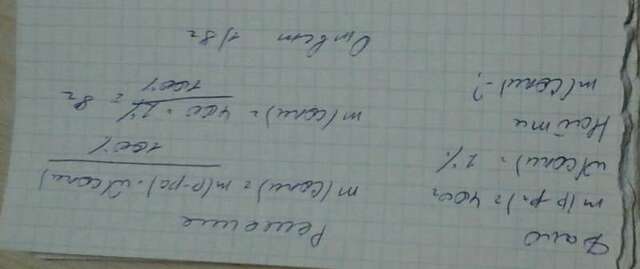 Дано
m(р-ра) = 400г
W(соли) = 2%
Найти
m(соли) - ?
Решение
m(соли) = m(р-ра) · W(соли)
100%
m(соли) = 400 · 2% = 8г
100%
Ответ 1) 8г